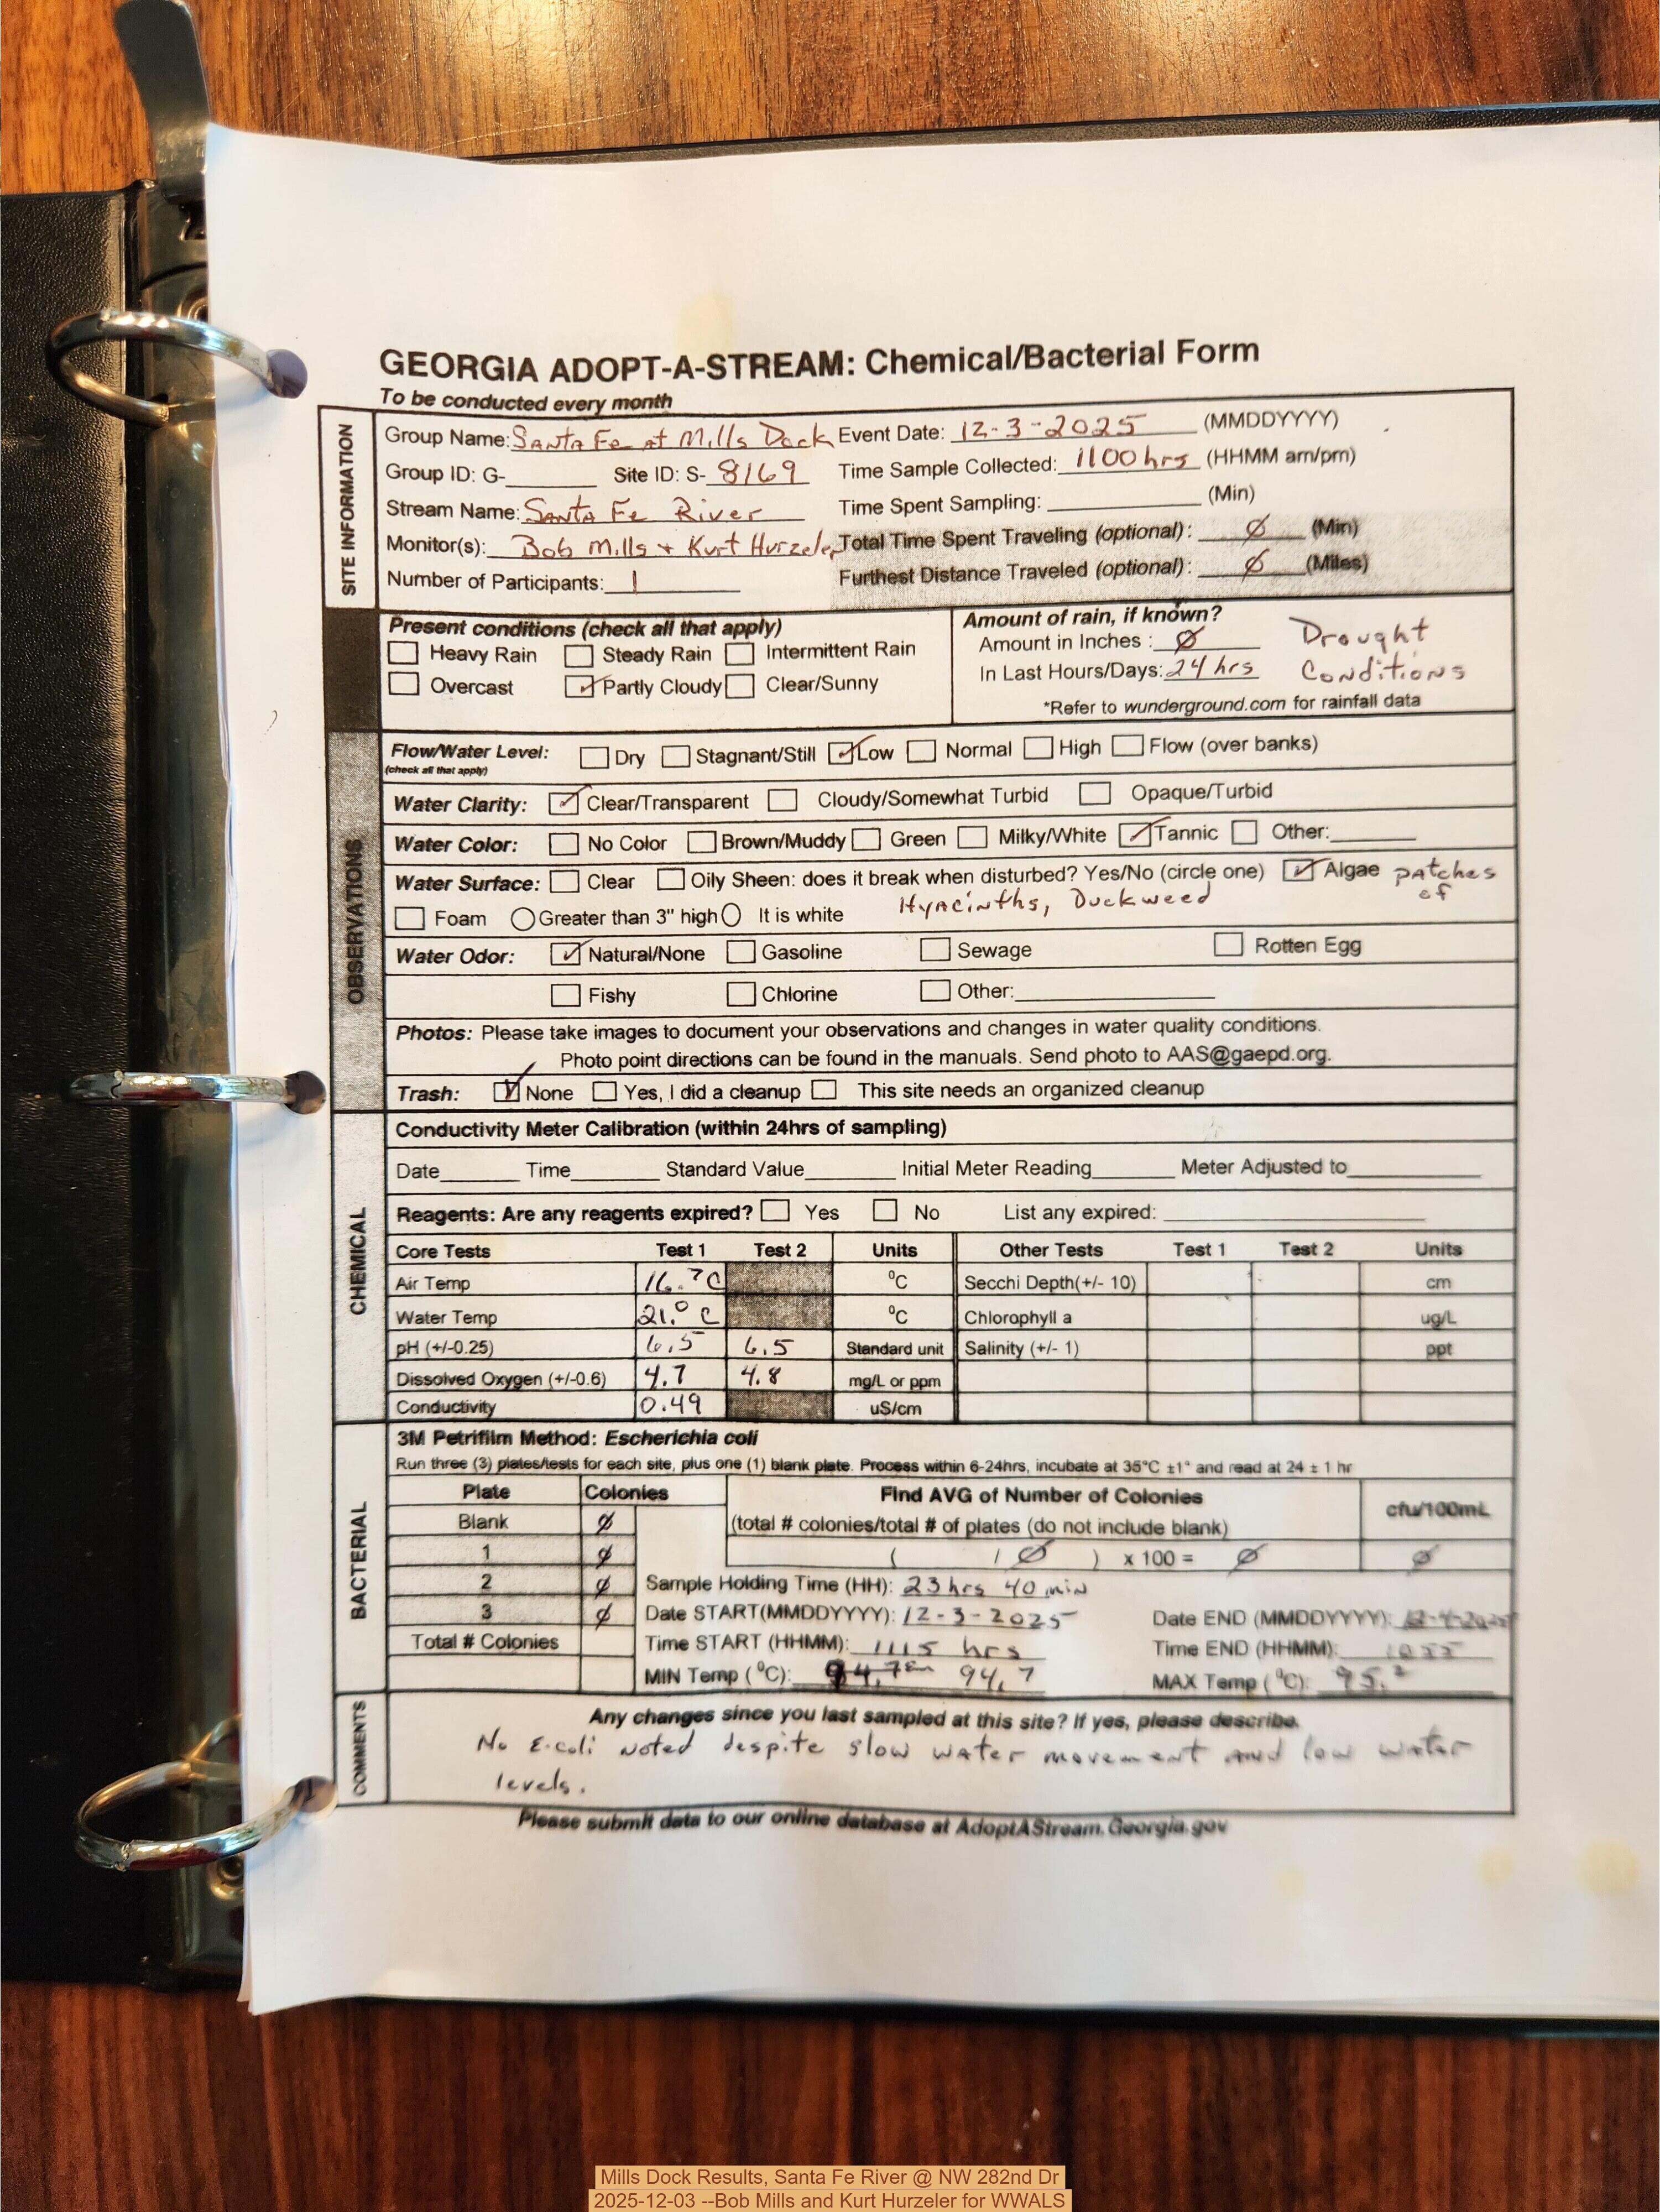 GEORGIA ADOPT-A-STREAM: Chemical/Bacterial Form
To be conducted every month
SITE INFORMATION
Group Name: Santa Fe at Mills Dock Event Date: 12-3-2025 (MMDDYYYY)
Group ID: G-______ Site ID: S-8169 Time Sample Collected: 1100 hrs (HHMM am/pm)
Stream Name: Santa Fe River Time Spent Sampling: ______ (Min)
Monitor(s): Bob Mills + Kurt Hurzeler Total Time Spent Traveling (optional): Ø (Min)
Number of Participants: 1 Furthest Distance Traveled (optional): Ø (Miles)
Present conditions (check all that apply) Amount of rain, if known?
Heavy Rain Steady Rain Intermittent Rain Amount in Inches: Ø Drought
Overcast Partly Cloudy Clear/Sunny In Last Hours/Days: 24 hrs Conditions
*Refer to wunderground.com for rainfall data
OBSERVATIONS
Flow/Water Level: Dry Stagnant/Still Low Normal High Flow (over banks)
(check all that apply)
Water Clarity: Clear/Transparent Cloudy/Somewhat Turbid Opaque/Turbid
Water Color: No Color Brown/Muddy Green Milky/White Tannic Other:______
Water Surface: Clear Oily Sheen: does it break when disturbed? Yes/No (circle one) Algae patches of
Foam Greater than 3" high It is white Hyacinths, Duckweed
Water Odor: Natural/None Gasoline Sewage Rotten Egg
Fishy Chlorine Other:______
Photos: Please take images to document your observations and changes in water quality conditions.
Photo point directions can be found in the manuals. Send photo to AAS@gaepd.org.
Trash: None Yes, I did a cleanup This site needs an organized cleanup
CHEMICAL
Conductivity Meter Calibration (within 24hrs of sampling)
Date______ Time______ Standard Value______ Initial Meter Reading______ Meter Adjusted to______
Reagents: Are any reagents expired? Yes No List any expired: ______
Core Tests Test 1 Test 2 Units Other Tests Test 1 Test 2 Units
Air Temp 16.7 C °C Secchi Depth(+/- 10) cm
Water Temp 21.0 C °C Chlorophyll a ug/L
pH (+/-0.25) 6.5 6.5 Standard unit Salinity (+/- 1) ppt
Dissolved Oxygen (+/-0.6) 4.7 4.8 mg/L or ppm
Conductivity 0.49 uS/cm
BACTERIAL
3M Petrifilm Method: Escherichia coli
Run three (3) plates/tests for each site, plus one (1) blank plate. Process within 6-24hrs, incubate at 35°C ±1° and read at 24 ± 1 hr
Plate Colonies Find AVG of Number of Colonies cfu/100mL
Blank Ø (total # colonies/total # of plates (do not include blank)
1 Ø ( / Ø ) x 100 = Ø Ø
2 Ø Sample Holding Time (HH): 23 hrs 40 min
3 Ø Date START(MMDDYYYY): 12-3-2025 Date END (MMDDYYYY): 12-4-2025
Total # Colonies Time START (HHMM): 1115 hrs Time END (HHMM): 1055
MIN Temp (°C): 94.7 MAX Temp (°C): 95.2
COMMENTS
Any changes since you last sampled at this site? If yes, please describe.
No E-coli noted despite slow water movement and low water
levels.
Please submit data to our online database at AdoptAStream.Georgia.gov
Mills Dock Results, Santa Fe River @ NW 282nd Dr
2025-12-03 --Bob Mills and Kurt Hurzeler for WWALS